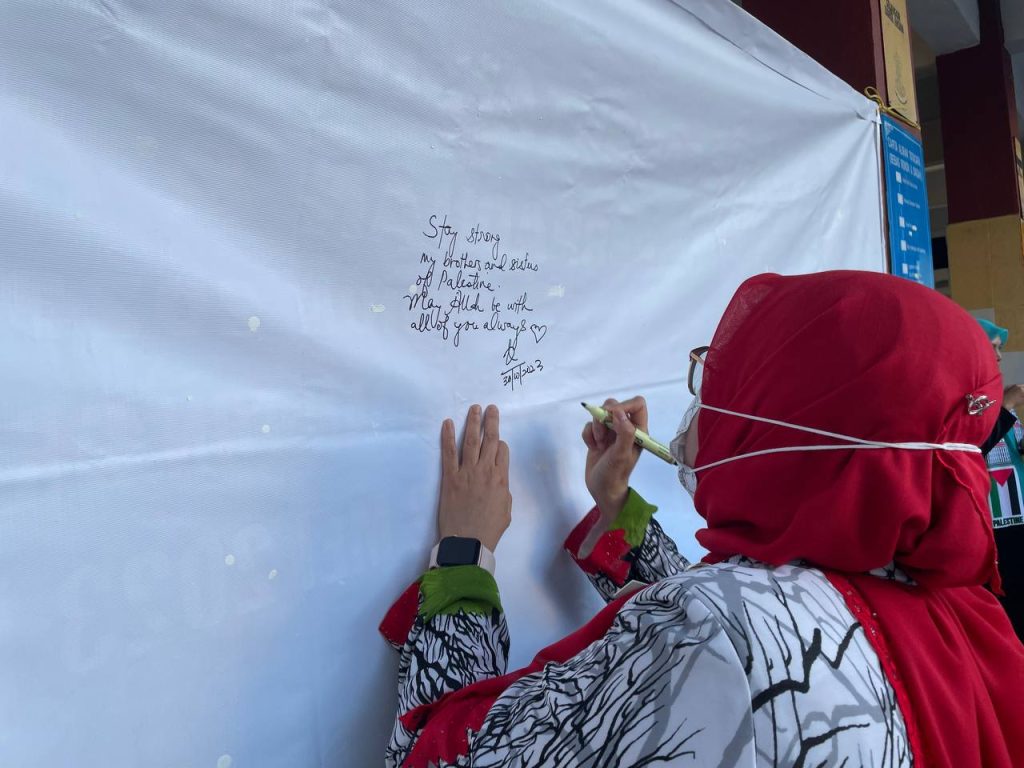 Stay strong
my brothers and sisters
of Palestine.
May Allah be with
all of you always ♡
30/10/2023
PALESTINE